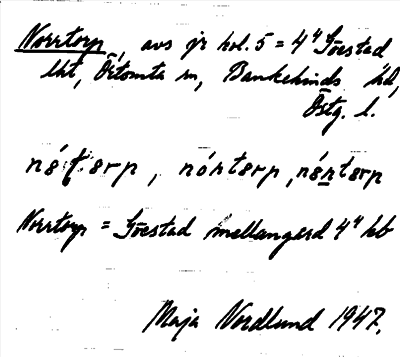 Norrtorp, avs jr kol. 5 = 4" Göestad
lht, Örtomta sn, Bankekinds hd,
Östg. l.
nó(torp, nóntorp, nóntorp
Norrtorp = Göestad mellangård 4" kb
Maja Nordlund 1947.